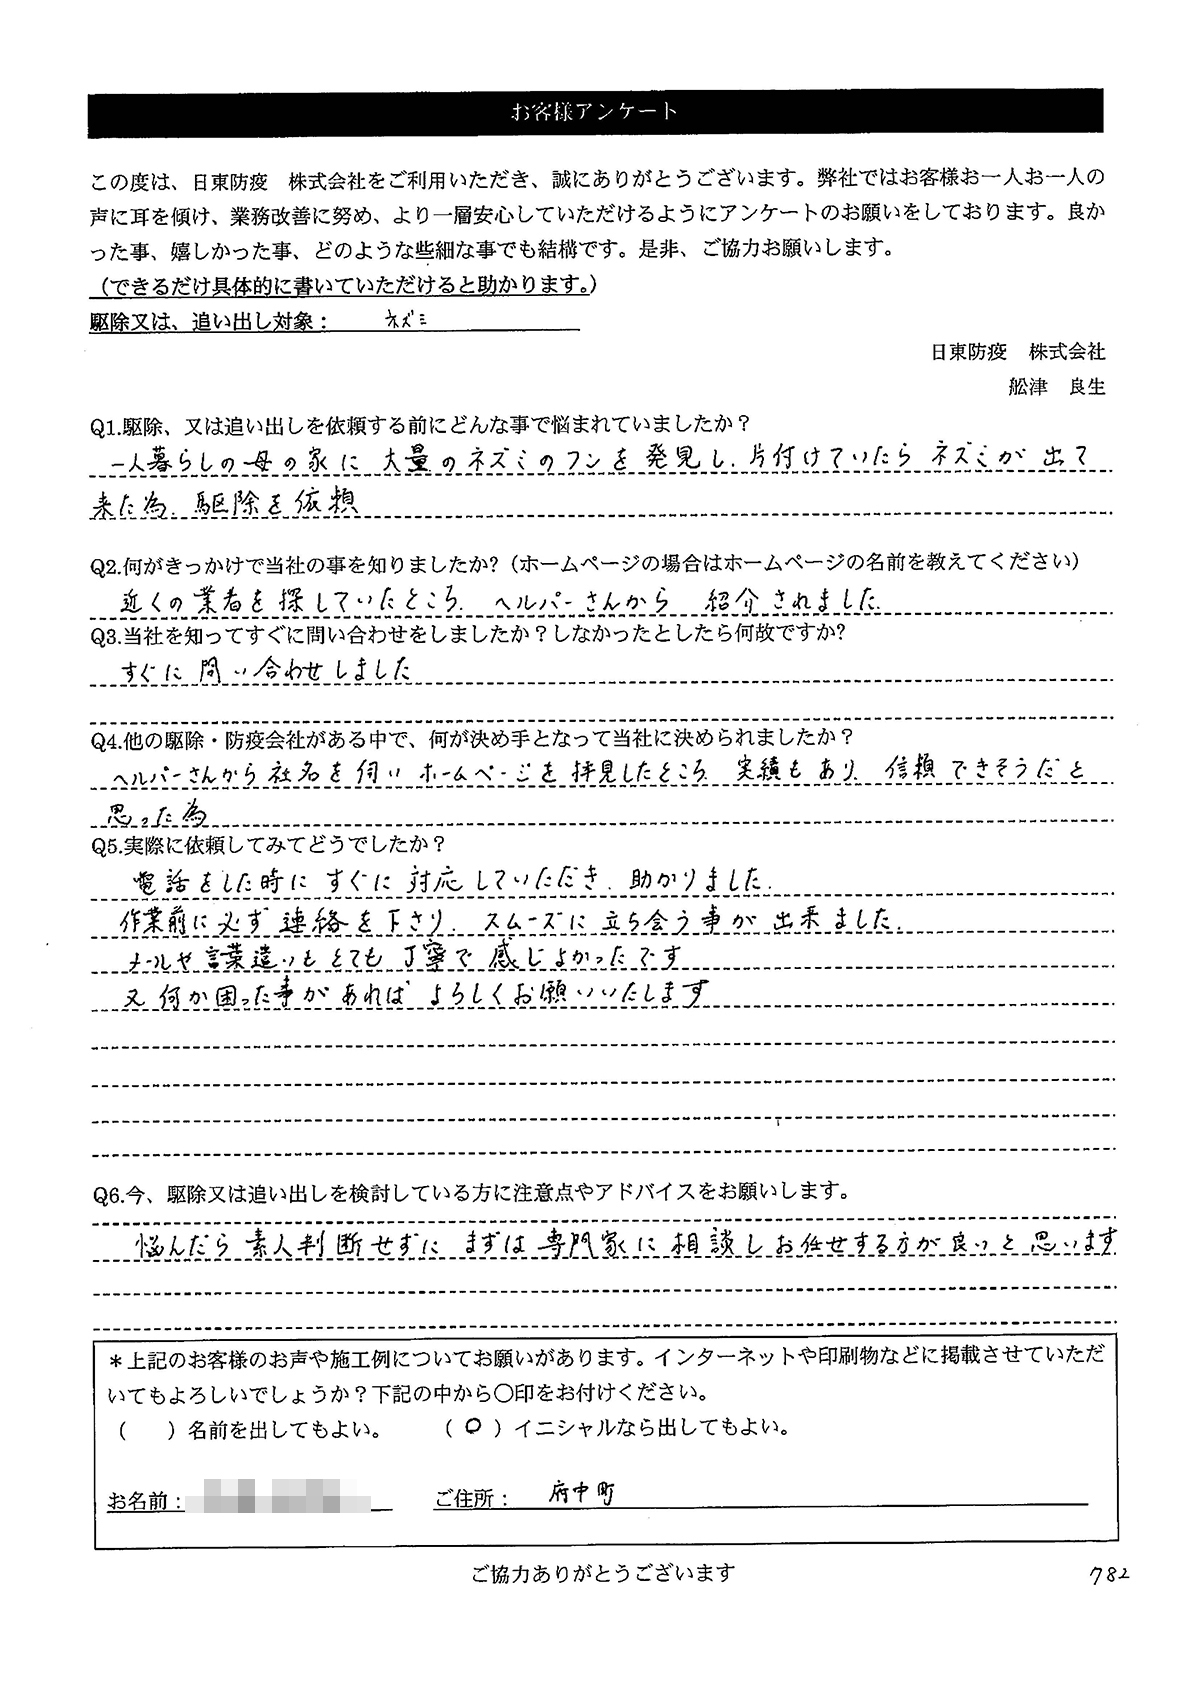 お客様アンケート
この度は、日東防疫　株式会社をご利用いただき、誠にありがとうございます。弊社ではお客様お一人お一人の
声に耳を傾け、業務改善に努め、より一層安心していただけるようにアンケートのお願いをしております。良か
った事、嬉しかった事、どのような些細な事でも結構です。是非、ご協力お願いします。
（できるだけ具体的に書いていただけると助かります。）
駆除又は、追い出し対象：　ネズミ
日東防疫　株式会社
舩津　良生
Q1.駆除、又は追い出しを依頼する前にどんな事で悩まれていましたか？
一人暮らしの母の家に 大量のネズミのフンを発見し、片付けていたらネズミが出て
来た為、駆除を依頼
Q2.何がきっかけで当社の事を知りましたか?（ホームページの場合はホームページの名前を教えてください）
近くの業者を探していたところ、ヘルパーさんから 紹介されました。
Q3.当社を知ってすぐに問い合わせをしましたか？しなかったとしたら何故ですか?
すぐに問い合わせしました
Q4.他の駆除・防疫会社がある中で、何が決め手となって当社に決められましたか？
ヘルパーさんから社名を伺い ホームページを拝見したところ、実績もあり、信頼できそうだと
思った為
Q5.実際に依頼してみてどうでしたか？
電話をした時に すぐに 対応していただき、助かりました。
作業前に必ず連絡を下さり、スムーズに立ち会う事が出来ました。
メールや言葉遣いもとても丁寧で感じよかったです
又何か困った事があれば よろしくお願いいたします
Q6.今、駆除又は追い出しを検討している方に注意点やアドバイスをお願いします。
悩んだら素人判断せずに まずは専門家に相談しお任せする方が良いと思います
＊上記のお客様のお声や施工例についてお願いがあります。インターネットや印刷物などに掲載させていただ
いてもよろしいでしょうか？下記の中から〇印をお付けください。
（　　）名前を出してもよい。　（ 〇 ）イニシャルなら出してもよい。
お名前：　ご住所：　府中町
ご協力ありがとうございます
782